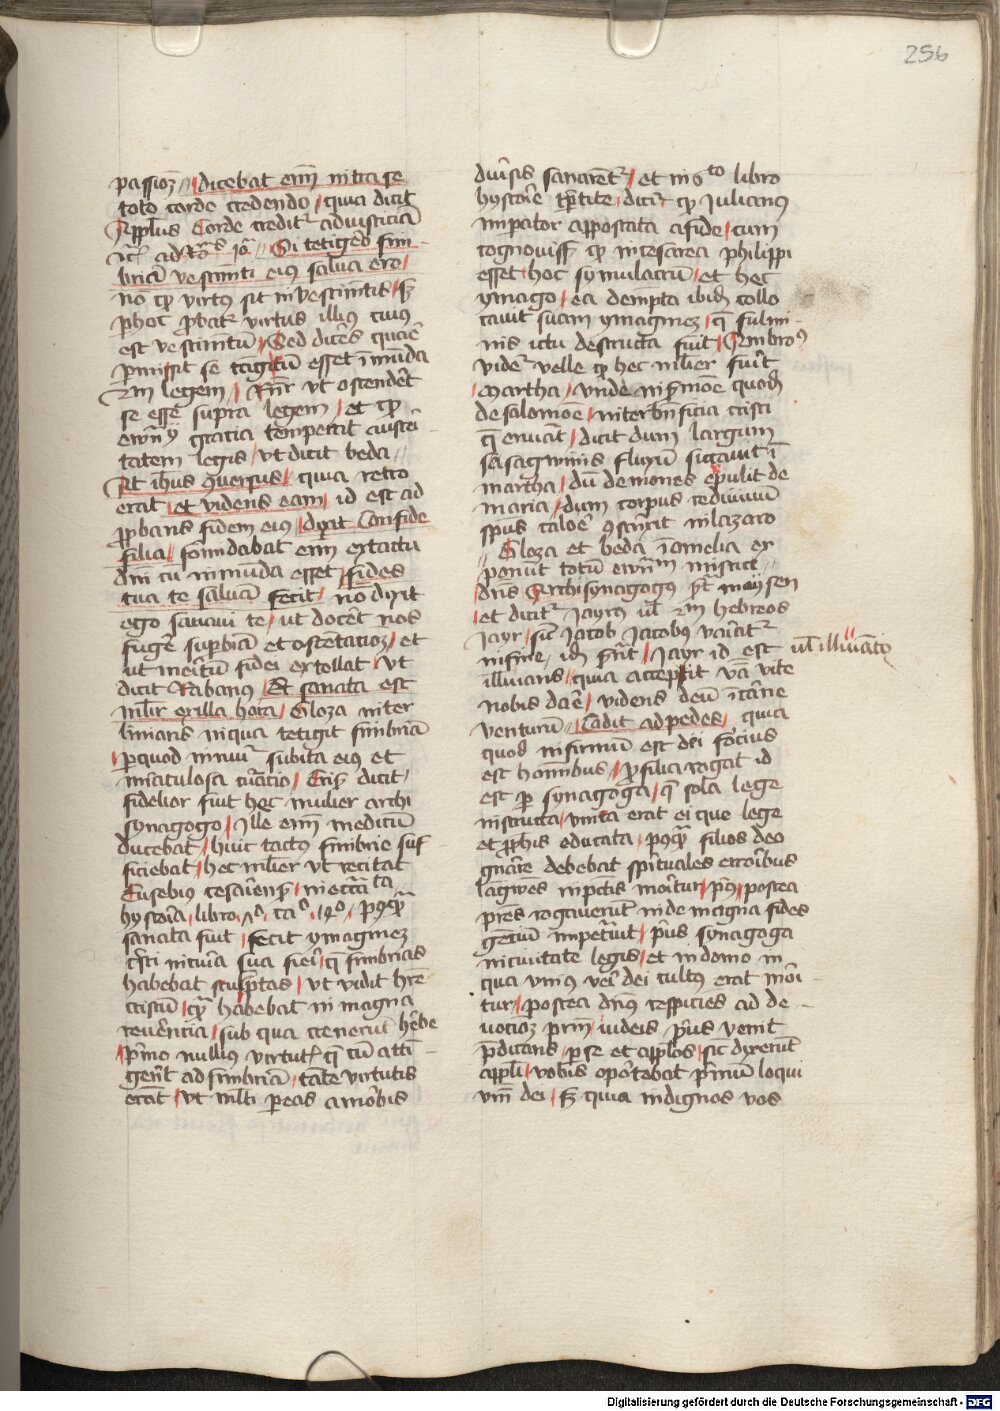 256
passioz / dicebat eni intra se
toto corde credendo / quia dicit
Applus Corde creditr ad iusticia
Si tetigero fim
bria vestimti eius salua ero /
no qp virtus sit in vestimtis / s3
p hoc probatr virtus illius cuius
est vestimtu / Sed dices quare
pmisit se tagi cu esset imuda
legem / ut ostenderet
se esse supra legem / et qp
gratia temperet austeri
tatem legis / ut dicit beda
At ihus quersus / quia retro
erat / et videns eam / id est ad
probans fidem eius / dixit Confide
filia / formidabat eni ex tactu
dni cu inmuda esset / fides
tua te salua fecit / no dixit
ego sanaui te / ut docet nos
fugere superbia et ostentatioz / et
ut meritu fidei extollat / ut
dicit Rabanus / Et sanata est
mulier ex illa hora / Gloza inter
linearis in qua tetigit fimbria
p quod innuit subita eius et
miraculosa curatio / Cris dicit
fidelior fuit hec mulier archi
synagogo / Ille eni medicu
ducebat / huic tactus fimbrie suf
ficiebat / hec mulier ut recitat
Eusebius cesarien / in ecca ta
hystoria / libro 7 ca 14 / postqua
sanata fuit / fecit ymaginez
cristi in curia sua fieri / q fimbrias
habebat sculptas / ut vidit hre
cristu / qua habebat in magna
reuerentia / sub qua crenerut herbe
primo nullius virtut / q cu atti
gerit ad fimbria / tante virtutis
erat / ut multi peas a morbis
diuersis sanarentr / et in 6to libro
hystorie tptite / dicit qp Julianus
imperator appostata a fide / cum
cognouisset qp in cesarea philippi
esset hoc symulacru / et hec
ymago / ea dempta ibide collo
cauit suam ymaginez / q fulmi
nis ictu destructa fuit / Ambros
videtr velle qp hec mulier fuerit
Martha / unde in smoe quod
de salomoe / inter bnficia cristi
q enuat / dicit dum largum
sangwinis fluxu siccauit i
martha / du demones expulit de
maria / dum corpus rediuiuu
spus calore in lazaro
Gloza et beda i omelia ex
ponut totu mistice
dns Archisynagogus pt moysen
et dicitr Jayrus ul hebreos
Jayr / sut Jacob Jacobus
in fine / id Jayr id est
ul illuiato
illuians / quia accepit va vite
nobis dare / videns deu i carne
venturu / Cadit ad pedes / quia
quod infirmu est dei forcius
est hominibus / p filia rogat id
est p synagoga / q sola lege
instructa / unica erat ei que lege
et prophis educata / postqua filios deo
gnare debebat spirituales erroribus
lagwes in pctis moritur / pus / postea
pres rogauerut inde magna fides
geciu impetrauit / prius synagoga
in ciuitate legis / et in domo in
qua unius veri dei cultus erat mori
tur / postea dns respicies ad de
uotioz prim iudeis prius venit
pdicans / p se et applos / sic dixerut
appli / vobis oportebat primu loqui
um dei / s3 quia indignos vos
Digitalisierung gefördert durch die Deutsche Forschungsgemeinschaft - DFG